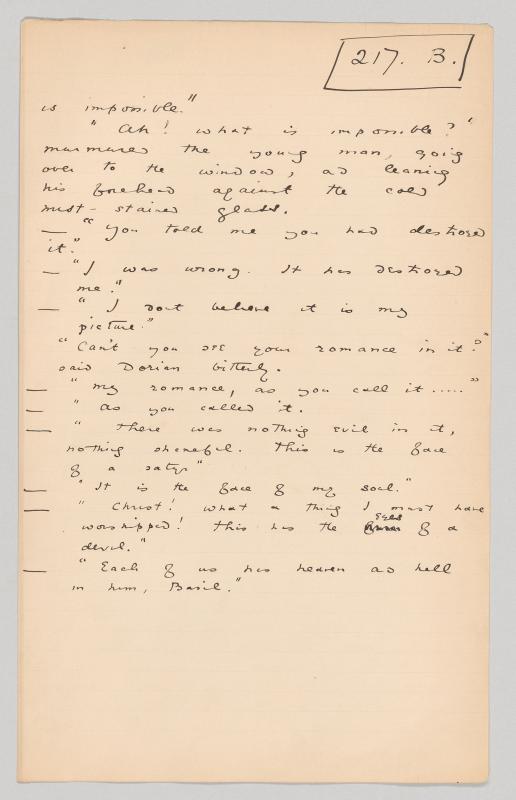 217. B.
is impossible."
"Ah! what is impossible?"
murmured the young man, going
over to the window, and leaning
his forehead against the cold
mist-stained glass.
— "You told me you had destroyed
it."
— "I was wrong. It has destroyed
me."
— "I dont believe it is my
picture."
"Can't you see your romance in it?"
said Dorian bitterly.
— "my romance, as you call it ....."
— "as you called it.
— "there was nothing evil in it,
nothing shameful. This is the face
of a satyr"
— "It is the face of my soul."
— "Christ! what a thing I must have
worshipped! This has the eyes of a
devil."
— "Each of us has heaven and hell
in him, Basil."